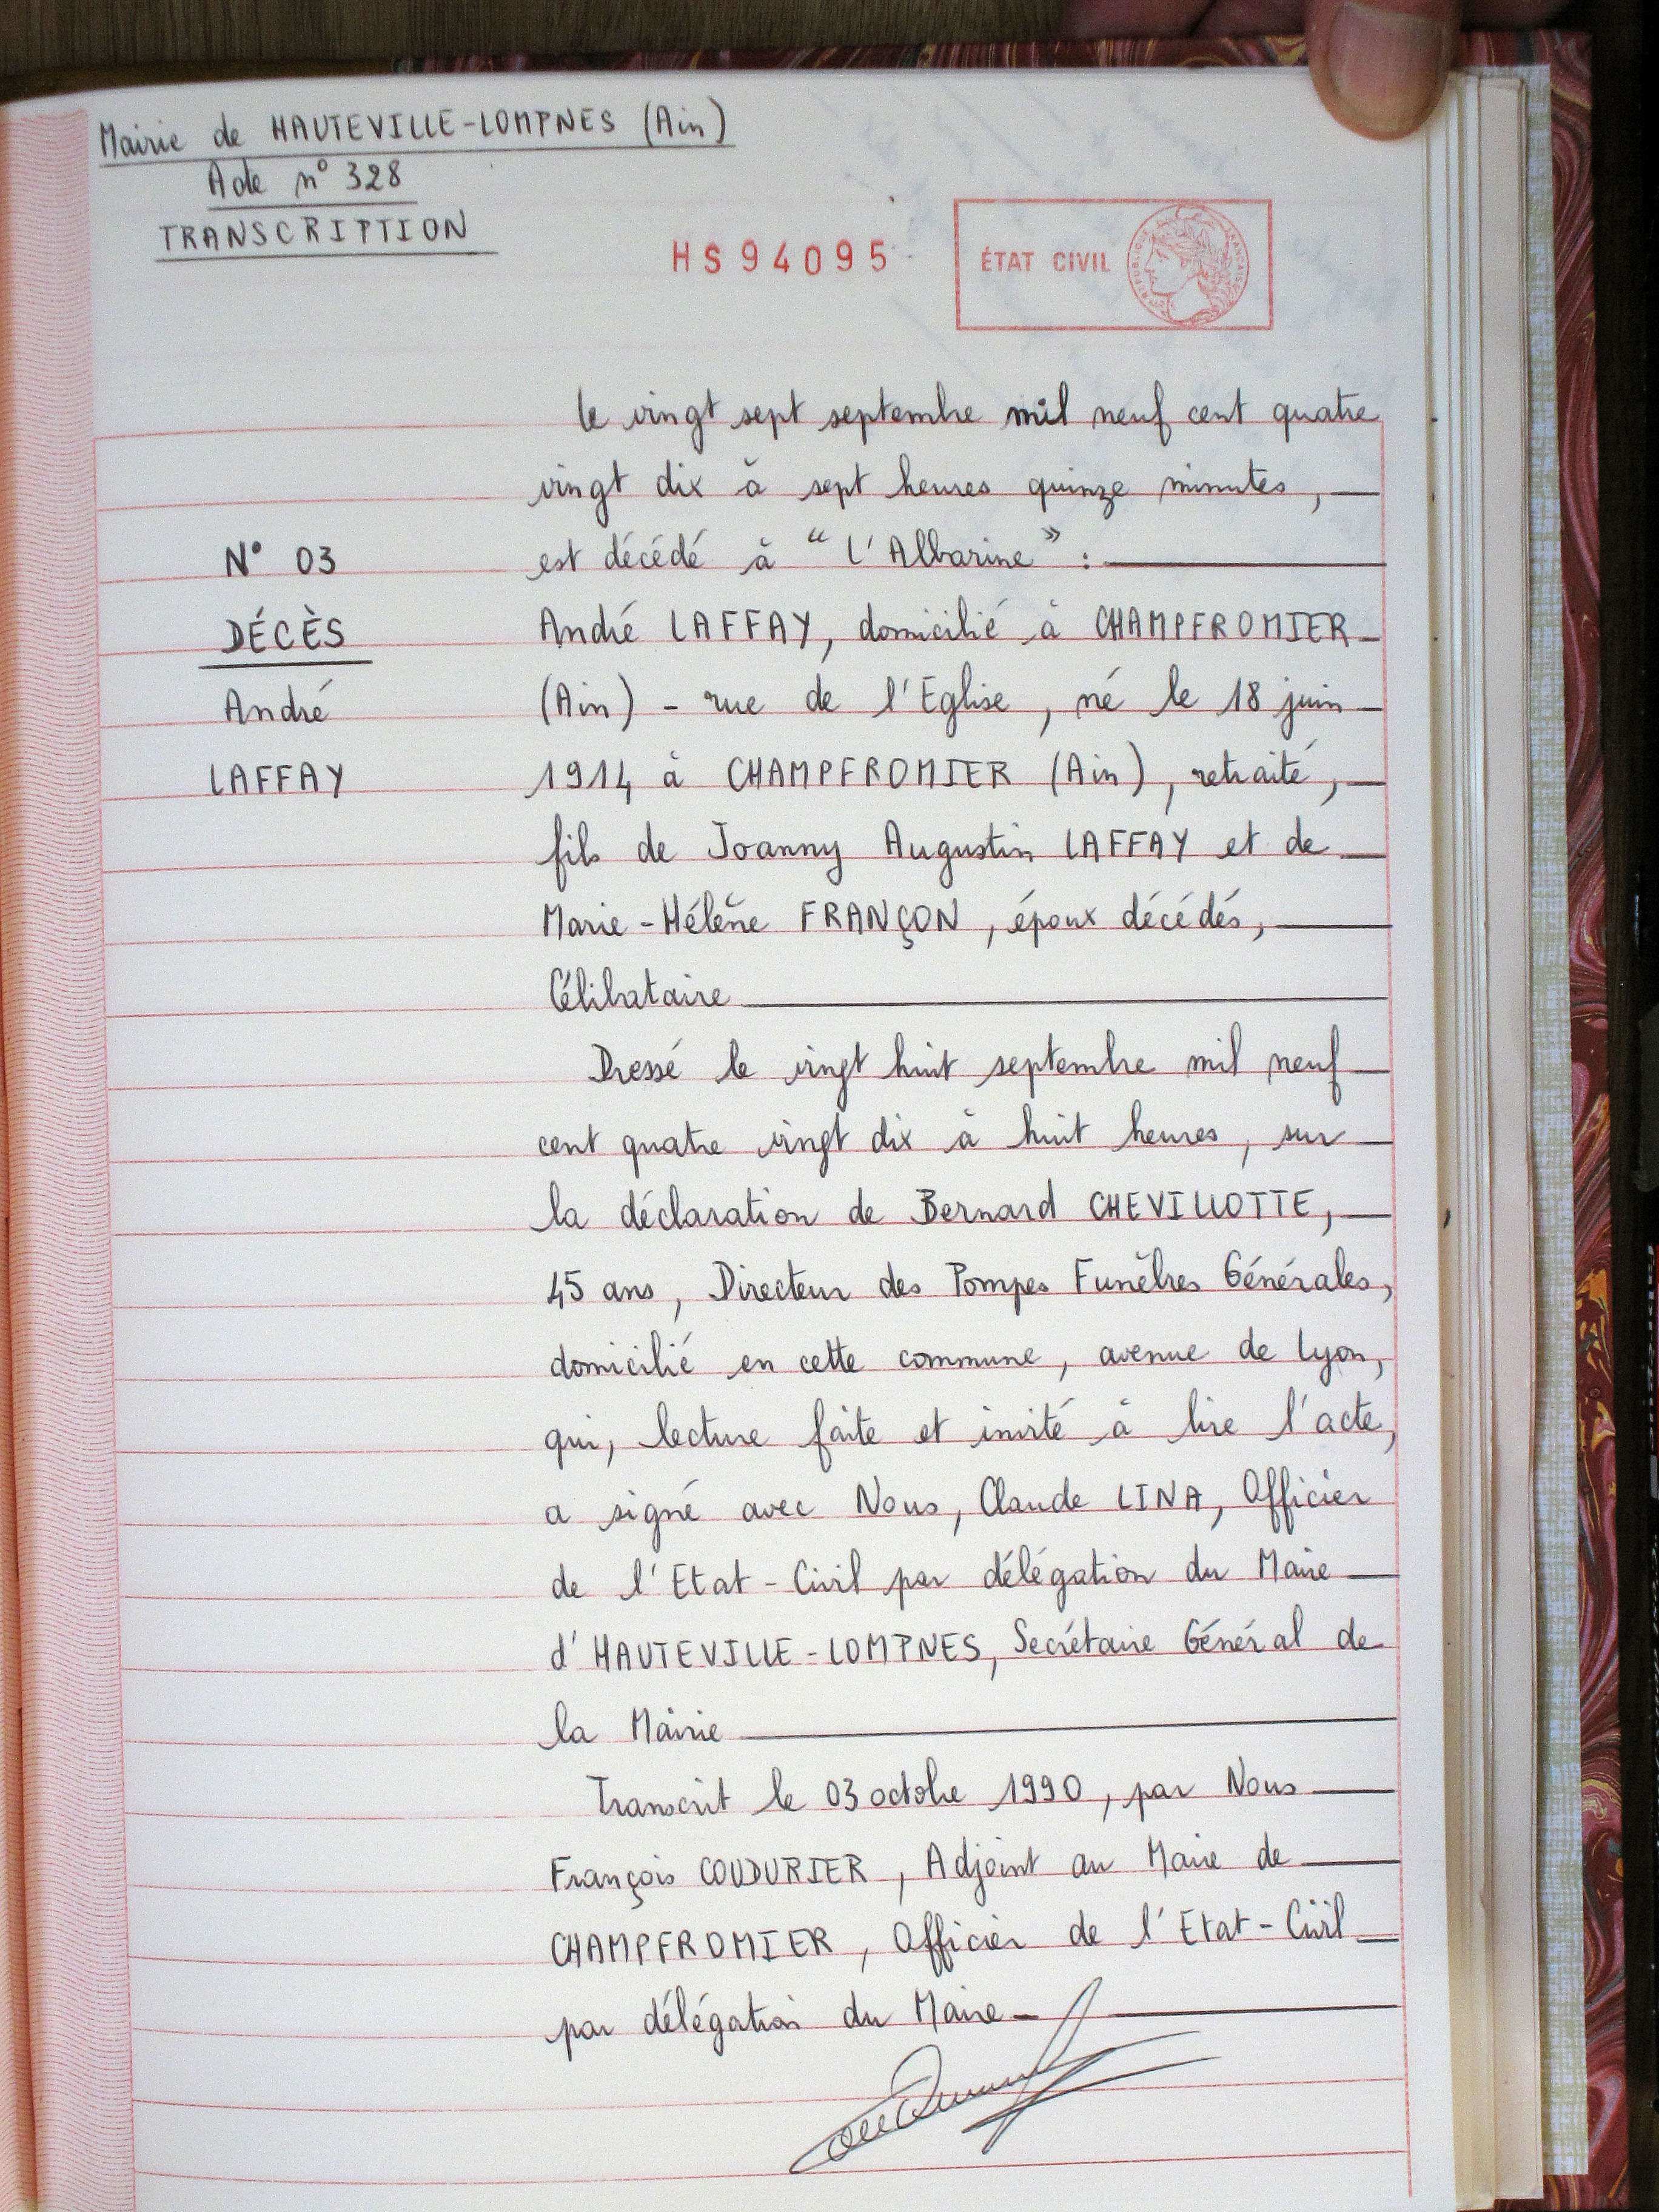 Mairie de HAUTEVILLE-LOMPNES (Ain)
Acte n° 328
TRANSCRIPTION
HS94095
ÉTAT CIVIL
RÉPUBLIQUE FRANÇAISE
le vingt sept septembre mil neuf cent quatre
vingt dix à sept heures quinze minutes,
est décédé à "l'Albarine" :
N° 03
DÉCÈS
André
LAFFAY
André LAFFAY, domicilié à CHAMPFROMIER
(Ain) - rue de l'Eglise, né le 18 juin
1914 à CHAMPFROMIER (Ain), retraité,
fils de Joanny Augustin LAFFAY et de
Marie-Hélène FRANÇON, époux décédés,
Célibataire
Dressé le vingt huit septembre mil neuf
cent quatre vingt dix à huit heures, sur
la déclaration de Bernard CHEVILLOTTE,
45 ans, Directeur des Pompes Funèbres Générales,
domicilié en cette commune, avenue de Lyon,
qui, lecture faite et invité à lire l'acte,
a signé avec Nous, Claude LINA, Officier
de l'Etat-Civil par délégation du Maire
d'HAUTEVILLE-LOMPNES, Secrétaire Général de
la Mairie
Transcrit le 03 octobre 1990, par Nous
François COUDURIER, Adjoint au Maire de
CHAMPFROMIER, Officier de l'Etat-Civil
par délégation du Maire